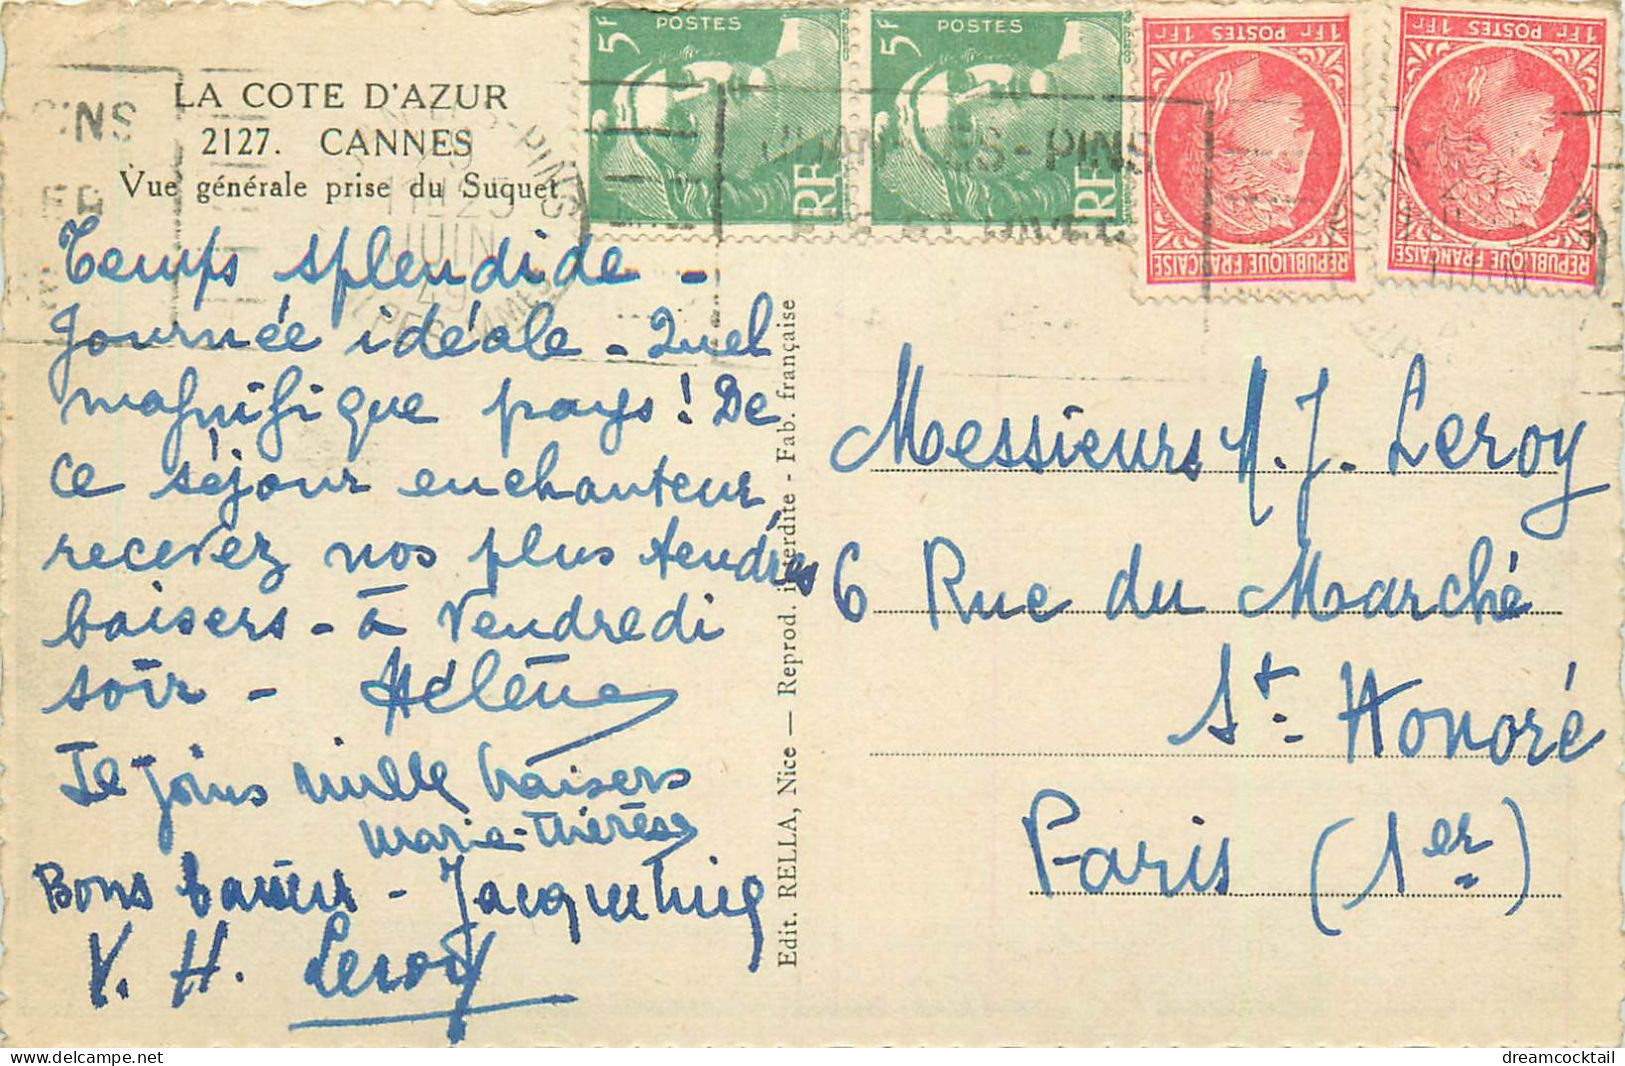 LA COTE D'AZUR
2127. CANNES
Vue générale prise du Suquet
Temps splendide -
Journée idéale - Quel
magnifique pays ! De
ce séjour enchanteur
recevez nos plus tendres
baisers - à Vendredi
soir - Hélène
Je joins mille baisers
Marie-Thérèse
Bons baisers - Jacqueline
V. H. Leroy
Edit. RELLA, Nice — Reprod. interdite - Fab. française
5F POSTES RF
5F POSTES RF
1Fr POSTES 1Fr
REPUBLIQUE FRANÇAISE
1Fr POSTES 1Fr
REPUBLIQUE FRANÇAISE
JUAN-LES-PINS
JUIN
Messieurs M. J. Leroy
6 Rue du Marché
St. Honoré
Paris (1er)
dreamcocktail